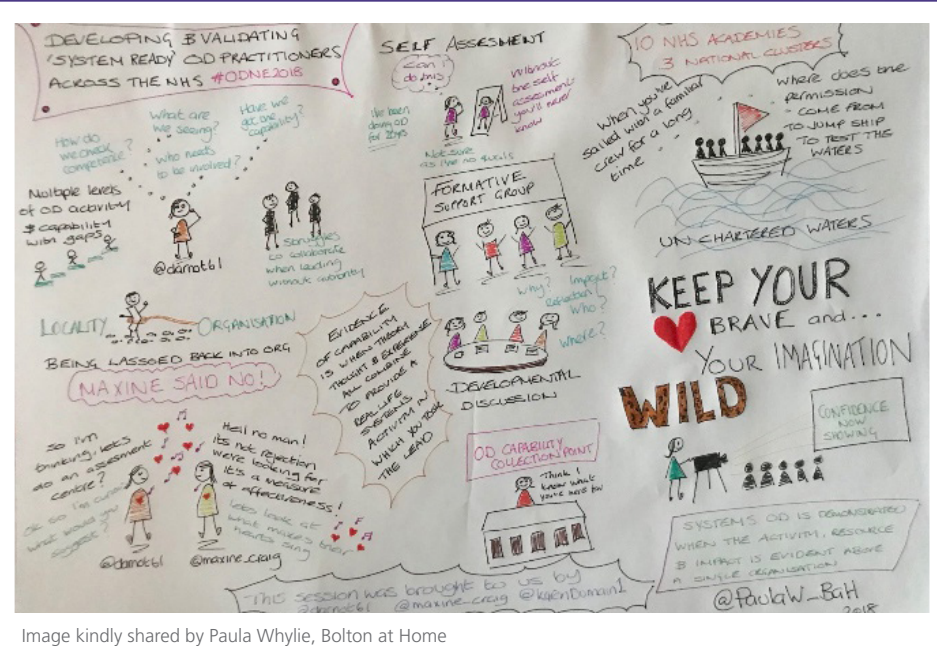 DEVELOPING & VALIDATING
'SYSTEM READY' OD PRACTITIONERS
ACROSS THE NHS #ODNE2018
How do
we check
competence?
What are
we seeing?
Have we
got the
capability?
Who needs
to be involved?
Multiple levels
of OD activity
& capability
with gaps
@damot61
to collaborate
when leading
without authority
LOCALITY
ORGANISATION
BEING LASSOED BACK INTO ORG
MAXINE SAID NO!
so I'm
thinking, let's
do an assesment
centre?
what would you
suggest?
Hell no man!
its not rejection
we're looking for
it's a measure
of effectiveness!
lets look at
what makes their
hearts sing
@damot61
@maxine_craig
SELF ASSESMENT
can I
do this
I've been
doing OD
for 20yrs
Without
the self
assessment
you'll never
know
Not sure
FORMATIVE
SUPPORT GROUP
Why?
Impact?
Reflection
Who?
Where?
DEVELOPMENTAL
DISCUSSION
EVIDENCE
OF CAPABILITY
IS WHEN THEORY
THOUGHT & EXPERIENCE
ALL COMBINE
TO PROVIDE A
REAL LIFE
SYSTEMS
ACTIVITY IN
WHICH YOU TOOK
THE LEAD
OD CAPABILITY
COLLECTION POINT
Think I
know what
you're here for
10 NHS ACADEMIES
3 NATIONAL CLUSTERS
When you've
sailed with a familiar
crew for a long
time
where does the
permission
COME FROM
TO JUMP SHIP
TO TEST THE
WATERS
UNCHARTERED WATERS
KEEP YOUR
BRAVE and...
YOUR IMAGINATION
WILD
CONFIDENCE
NOW
SHOWING
SYSTEMS OD IS DEMONSTRATED
WHEN THE ACTIVITY, RESOURCE
& IMPACT IS EVIDENT ABOVE
A SINGLE ORGANISATION
@PaulaW_BaH
2018
THIS SESSION WAS BROUGHT TO US BY
@damot61 @maxine_craig @KarenDumain1
Image kindly shared by Paula Whylie, Bolton at Home